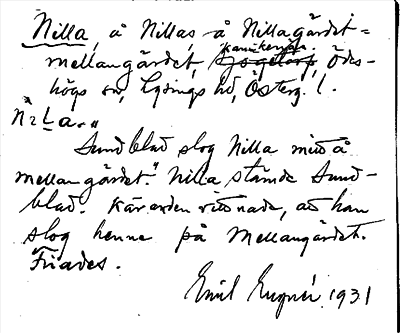 Nilla, å Nillas å Nillagärdet =
mellangärdet, Ödes-
högs sn, Lysings hd, Österg. l.
Nilla."
Sundblad slog Nilla mitt å
mellangärdet." Nilla stämde Sund-
blad. Käranden vittnade, att han
slog henne på Mellangärdet.
Friades.
Emil Eugnér 1931